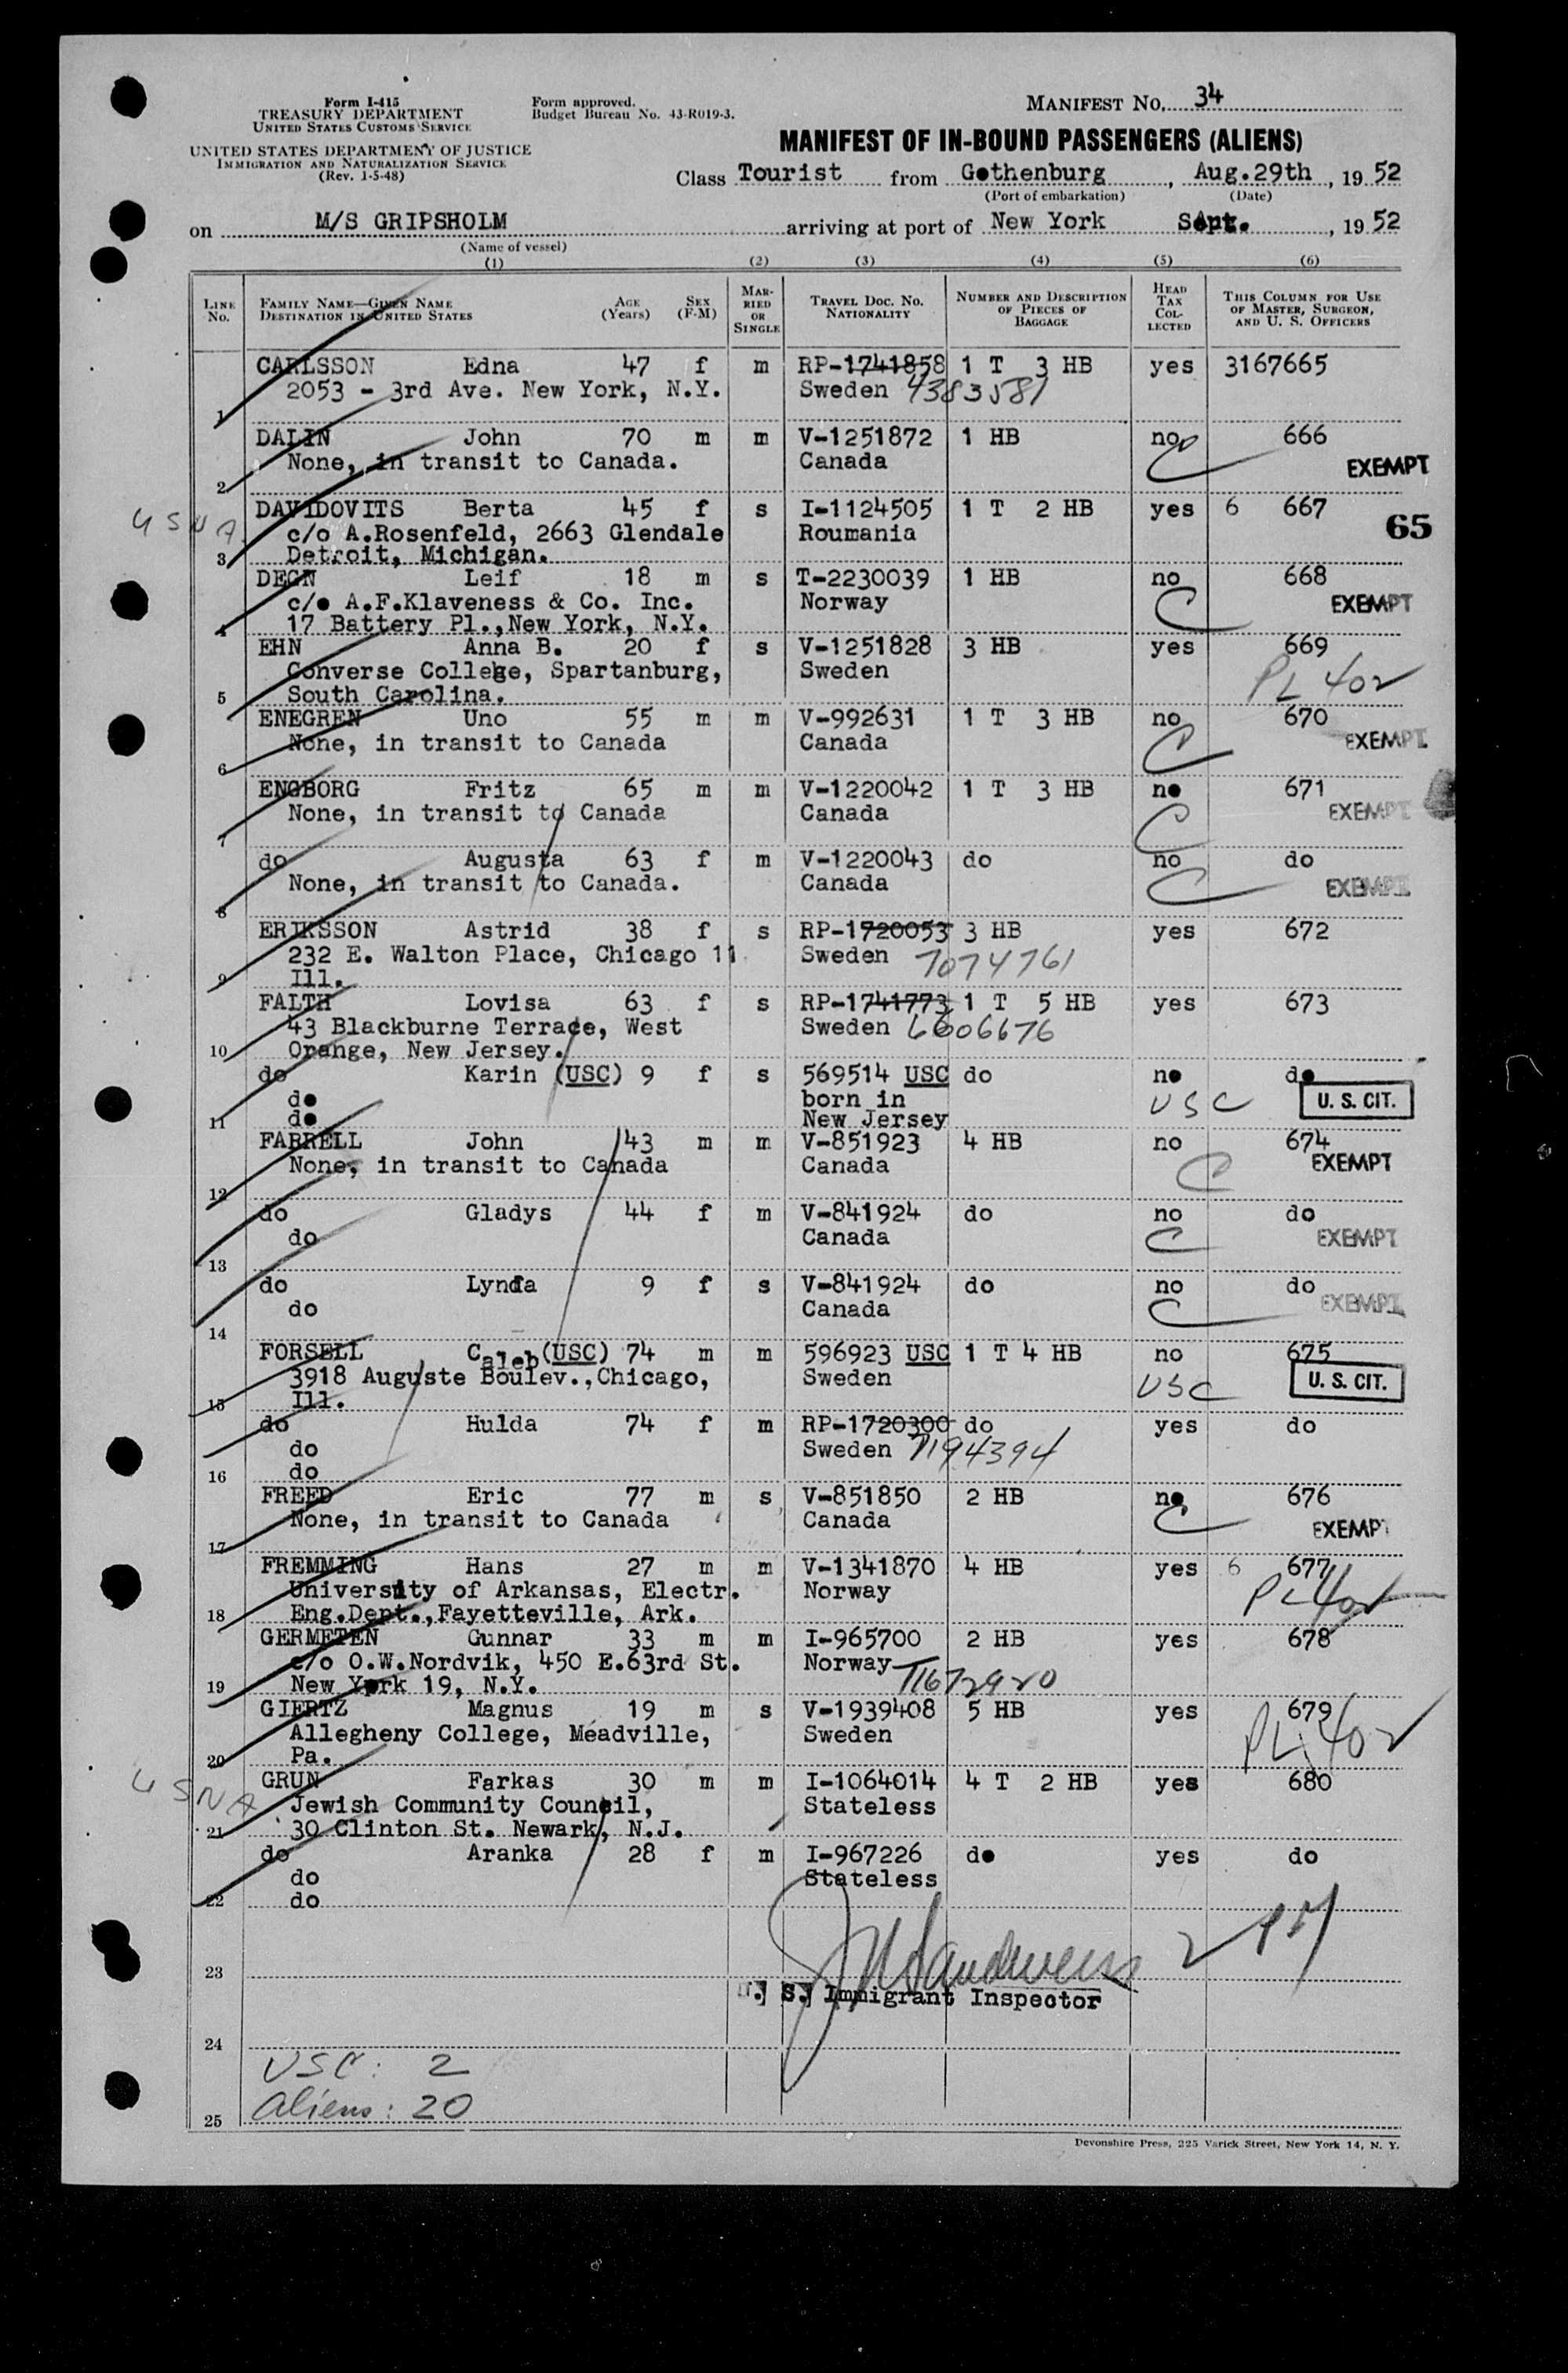 Form I-415
TREASURY DEPARTMENT
UNITED STATES CUSTOMS SERVICE
UNITED STATES DEPARTMENT OF JUSTICE
IMMIGRATION AND NATURALIZATION SERVICE
(Rev. 1-5-48)
Form approved.
Budget Bureau No. 43-R019-3.
MANIFEST NO. 34
MANIFEST OF IN-BOUND PASSENGERS (ALIENS)
Class Tourist from Gothenburg, Aug.29th, 19 52
(Port of embarkation) (Date)
on M/S GRIPSHOLM arriving at port of New York Sept., 19 52
(Name of vessel)
(1) (2) (3) (4) (5) (6)
LINE NO. FAMILY NAME—GIVEN NAME DESTINATION IN UNITED STATES AGE (Years) SEX (F-M) MARRIED OR SINGLE TRAVEL DOC. NO. NATIONALITY NUMBER AND DESCRIPTION OF PIECES OF BAGGAGE HEAD TAX COLLECTED THIS COLUMN FOR USE OF MASTER, SURGEON, AND U. S. OFFICERS
CARLSSON Edna 47 f m RP-1741858 1 T 3 HB yes 3167665
2053 - 3rd Ave. New York, N.Y. Sweden 4383581
1
DALIN John 70 m m V-1251872 1 HB no 666
None, in transit to Canada. Canada C EXEMPT
2
DAVIDOVITS Berta 45 f s I-1124505 1 T 2 HB yes 6 667
USNA c/o A.Rosenfeld, 2663 Glendale Roumania 65
3 Detroit, Michigan.
DEGN Leif 18 m s T-2230039 1 HB no 668
c/o A.F.Klaveness & Co. Inc. Norway C EXEMPT
4 17 Battery Pl.,New York, N.Y.
EHN Anna B. 20 f s V-1251828 3 HB yes 669
Converse College, Spartanburg, Sweden PL 402
5 South Carolina.
ENEGREN Uno 55 m m V-992631 1 T 3 HB no 670
None, in transit to Canada Canada C EXEMPT
6
ENGBORG Fritz 65 m m V-1220042 1 T 3 HB no 671
None, in transit to Canada Canada C EXEMPT
7
do Augusta 63 f m V-1220043 do no do
None, in transit to Canada. Canada C EXEMPT
8
ERIKSSON Astrid 38 f s RP-1720053 3 HB yes 672
232 E. Walton Place, Chicago 11 Sweden 7074761
9 Ill.
FALTH Lovisa 63 f s RP-1741773 1 T 5 HB yes 673
43 Blackburne Terrace, West Sweden 6606676
10 Orange, New Jersey.
do Karin (USC) 9 f s 569514 USC do no do
do born in USC U. S. CIT.
11 do New Jersey
FARRELL John 43 m m V-851923 4 HB no 674
None, in transit to Canada Canada C EXEMPT
12
do Gladys 44 f m V-841924 do no do
do Canada C EXEMPT
13
do Lynda 9 f s V-841924 do no do
do Canada C EXEMPT
14
FORSELL Caleb (USC) 74 m m 596923 USC 1 T 4 HB no 675
3918 Auguste Boulev.,Chicago, Sweden USC U. S. CIT.
15 Ill.
do Hulda 74 f m RP-1720300 do yes do
do Sweden 7194394
16 do
FREED Eric 77 m s V-851850 2 HB no 676
None, in transit to Canada Canada C EXEMPT
17
FREMMING Hans 27 m m V-1341870 4 HB yes 6 677
University of Arkansas, Electr. Norway PL 402
18 Eng.Dept.,Fayetteville, Ark.
GERMETEN Gunnar 33 m m I-965700 2 HB yes 678
c/o O.W.Nordvik, 450 E.63rd St. Norway T1672920
19 New York 19, N.Y.
GIERTZ Magnus 19 m s V-1939408 5 HB yes 679
Allegheny College, Meadville, Sweden PL 402
20 Pa.
USNA GRUN Farkas 30 m m I-1064014 4 T 2 HB yes 680
Jewish Community Council, Stateless
21 30 Clinton St. Newark, N.J.
do Aranka 28 f m I-967226 do yes do
do Stateless
22 do
23
U. S. Immigrant Inspector
24
USC: 2
Aliens: 20
25
Devonshire Press, 225 Varick Street, New York 14, N. Y.